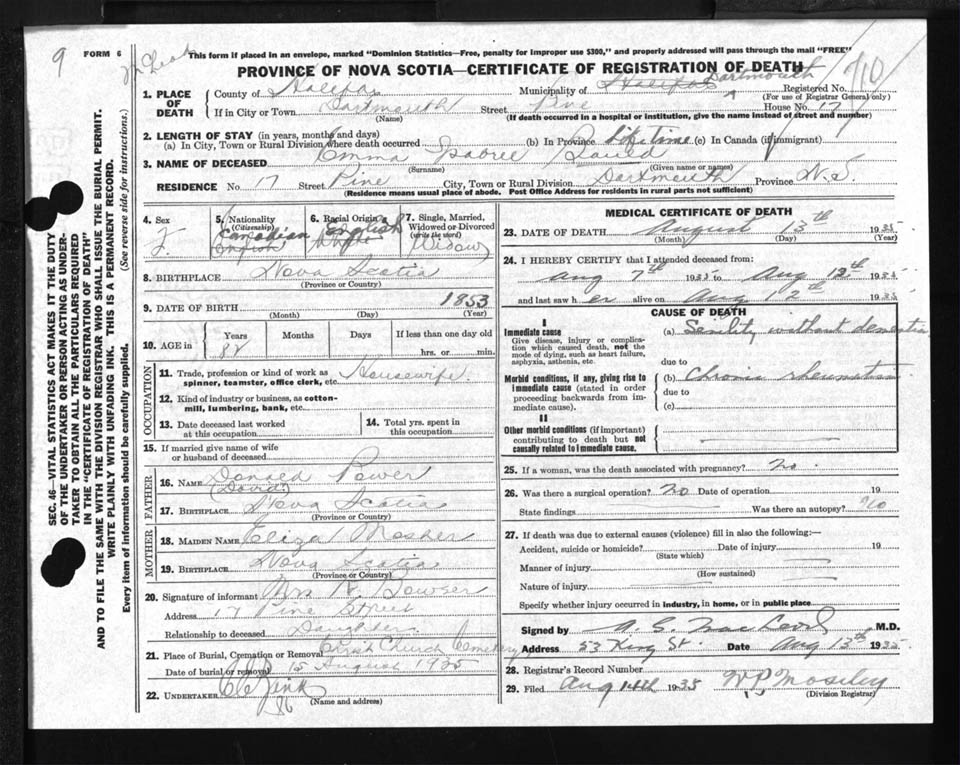 9
FORM 6
This form if placed in an envelope, marked "Dominion Statistics—Free, penalty for improper use $300," and properly addressed will pass through the mail "FREE"
PROVINCE OF NOVA SCOTIA—CERTIFICATE OF REGISTRATION OF DEATH
SEC. 46—VITAL STATISTICS ACT MAKES IT THE DUTY
OF THE UNDERTAKER OR PERSON ACTING AS UNDER-
TAKER TO OBTAIN ALL THE PARTICULARS REQUIRED
IN THE "CERTIFICATE OF REGISTRATION OF DEATH"
AND TO FILE THE SAME WITH THE DIVISION REGISTRAR WHO SHALL ISSUE THE BURIAL PERMIT.
WRITE PLAINLY WITH UNFADING INK. THIS IS A PERMANENT RECORD.
Every item of information should be carefully supplied. (See reverse side for instructions.)
1. PLACE OF DEATH
County of Halifax Municipality of Halifax Dartmouth Registered No.
(For use of Registrar General only)
If in City or Town Dartmouth Street Pine House No. 17
(Name) (If death occurred in a hospital or institution, give the name instead of street and number)
2. LENGTH OF STAY (in years, months and days)
(a) In City, Town or Rural Division where death occurred (b) In Province Lifetime (c) In Canada (if immigrant)
3. NAME OF DECEASED Emma
(Surname) (Given name or names)
RESIDENCE No. 17 Street Pine City, Town or Rural Division Dartmouth Province N.S.
(Residence means usual place of abode. Post Office Address for residents in rural parts not sufficient)
4. Sex F.
5. Nationality (Citizenship) Canadian English
6. Racial Origin English White
7. Single, Married, Widowed or Divorced (write the word) Widow
8. BIRTHPLACE Nova Scotia
(Province or Country)
9. DATE OF BIRTH 1853
(Month) (Day) (Year)
10. AGE in Years 82 Months Days If less than one day old hrs. or min.
OCCUPATION
11. Trade, profession or kind of work as spinner, teamster, office clerk, etc. Housewife
12. Kind of industry or business, as cotton-mill, lumbering, bank, etc.
13. Date deceased last worked at this occupation
14. Total yrs. spent in this occupation
15. If married give name of wife or husband of deceased
FATHER
16. NAME Daniel Power
(David)
17. BIRTHPLACE Nova Scotia
(Province or Country)
MOTHER
18. MAIDEN NAME Eliza Mosher
19. BIRTHPLACE Nova Scotia
(Province or Country)
20. Signature of informant Mrs Bowser
Address 17 Pine Street
Relationship to deceased Daughter
21. Place of Burial, Cremation or Removal Christ Church Cemetery
Date of burial or removal 15 August 1935
22. UNDERTAKER Zink
86
(Name and address)
MEDICAL CERTIFICATE OF DEATH
23. DATE OF DEATH August 13th 1935
(Month) (Day) (Year)
24. I HEREBY CERTIFY that I attended deceased from:
Aug 7th 1935 to Aug 12th 1935
and last saw her alive on Aug 12th 1935
CAUSE OF DEATH
I
Immediate cause
Give disease, injury or complication which caused death, not the mode of dying, such as heart failure, asphyxia, asthenia, etc.
(a) Senility without dementia
due to
Morbid conditions, if any, giving rise to immediate cause (stated in order proceeding backwards from immediate cause).
(b) Chronic rheumatism
due to
(c)
II
Other morbid conditions (if important) contributing to death but not causally related to immediate cause.
25. If a woman, was the death associated with pregnancy? No.
26. Was there a surgical operation? No Date of operation 19
State findings Was there an autopsy? No
27. If death was due to external causes (violence) fill in also the following:—
Accident, suicide or homicide? Date of injury 19
(State which)
Manner of injury
(How sustained)
Nature of injury
Specify whether injury occurred in industry, in home, or in public place
Signed by MacLeod M.D.
Address 53 King St. Date Aug 13th 1935
28. Registrar's Record Number
29. Filed Aug 14th 1935 WP Moseley
(Division Registrar)